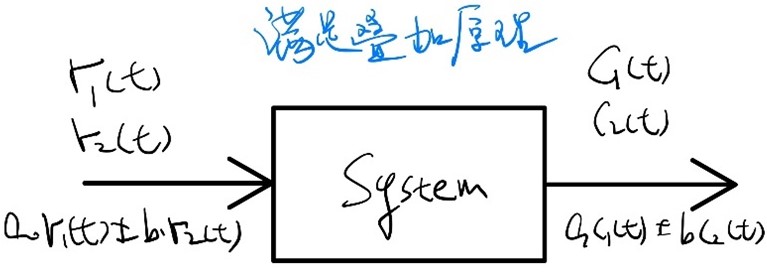 满足叠加原理
r₁(t)
r₂(t)
a·r₁(t)±b·r₂(t)
System
C₁(t)
C₂(t)
a·C₁(t)±bC₂(t)